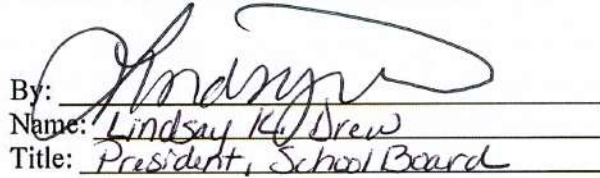 By: Lindsay
Name: Lindsay K. Drew
Title: President, School Board